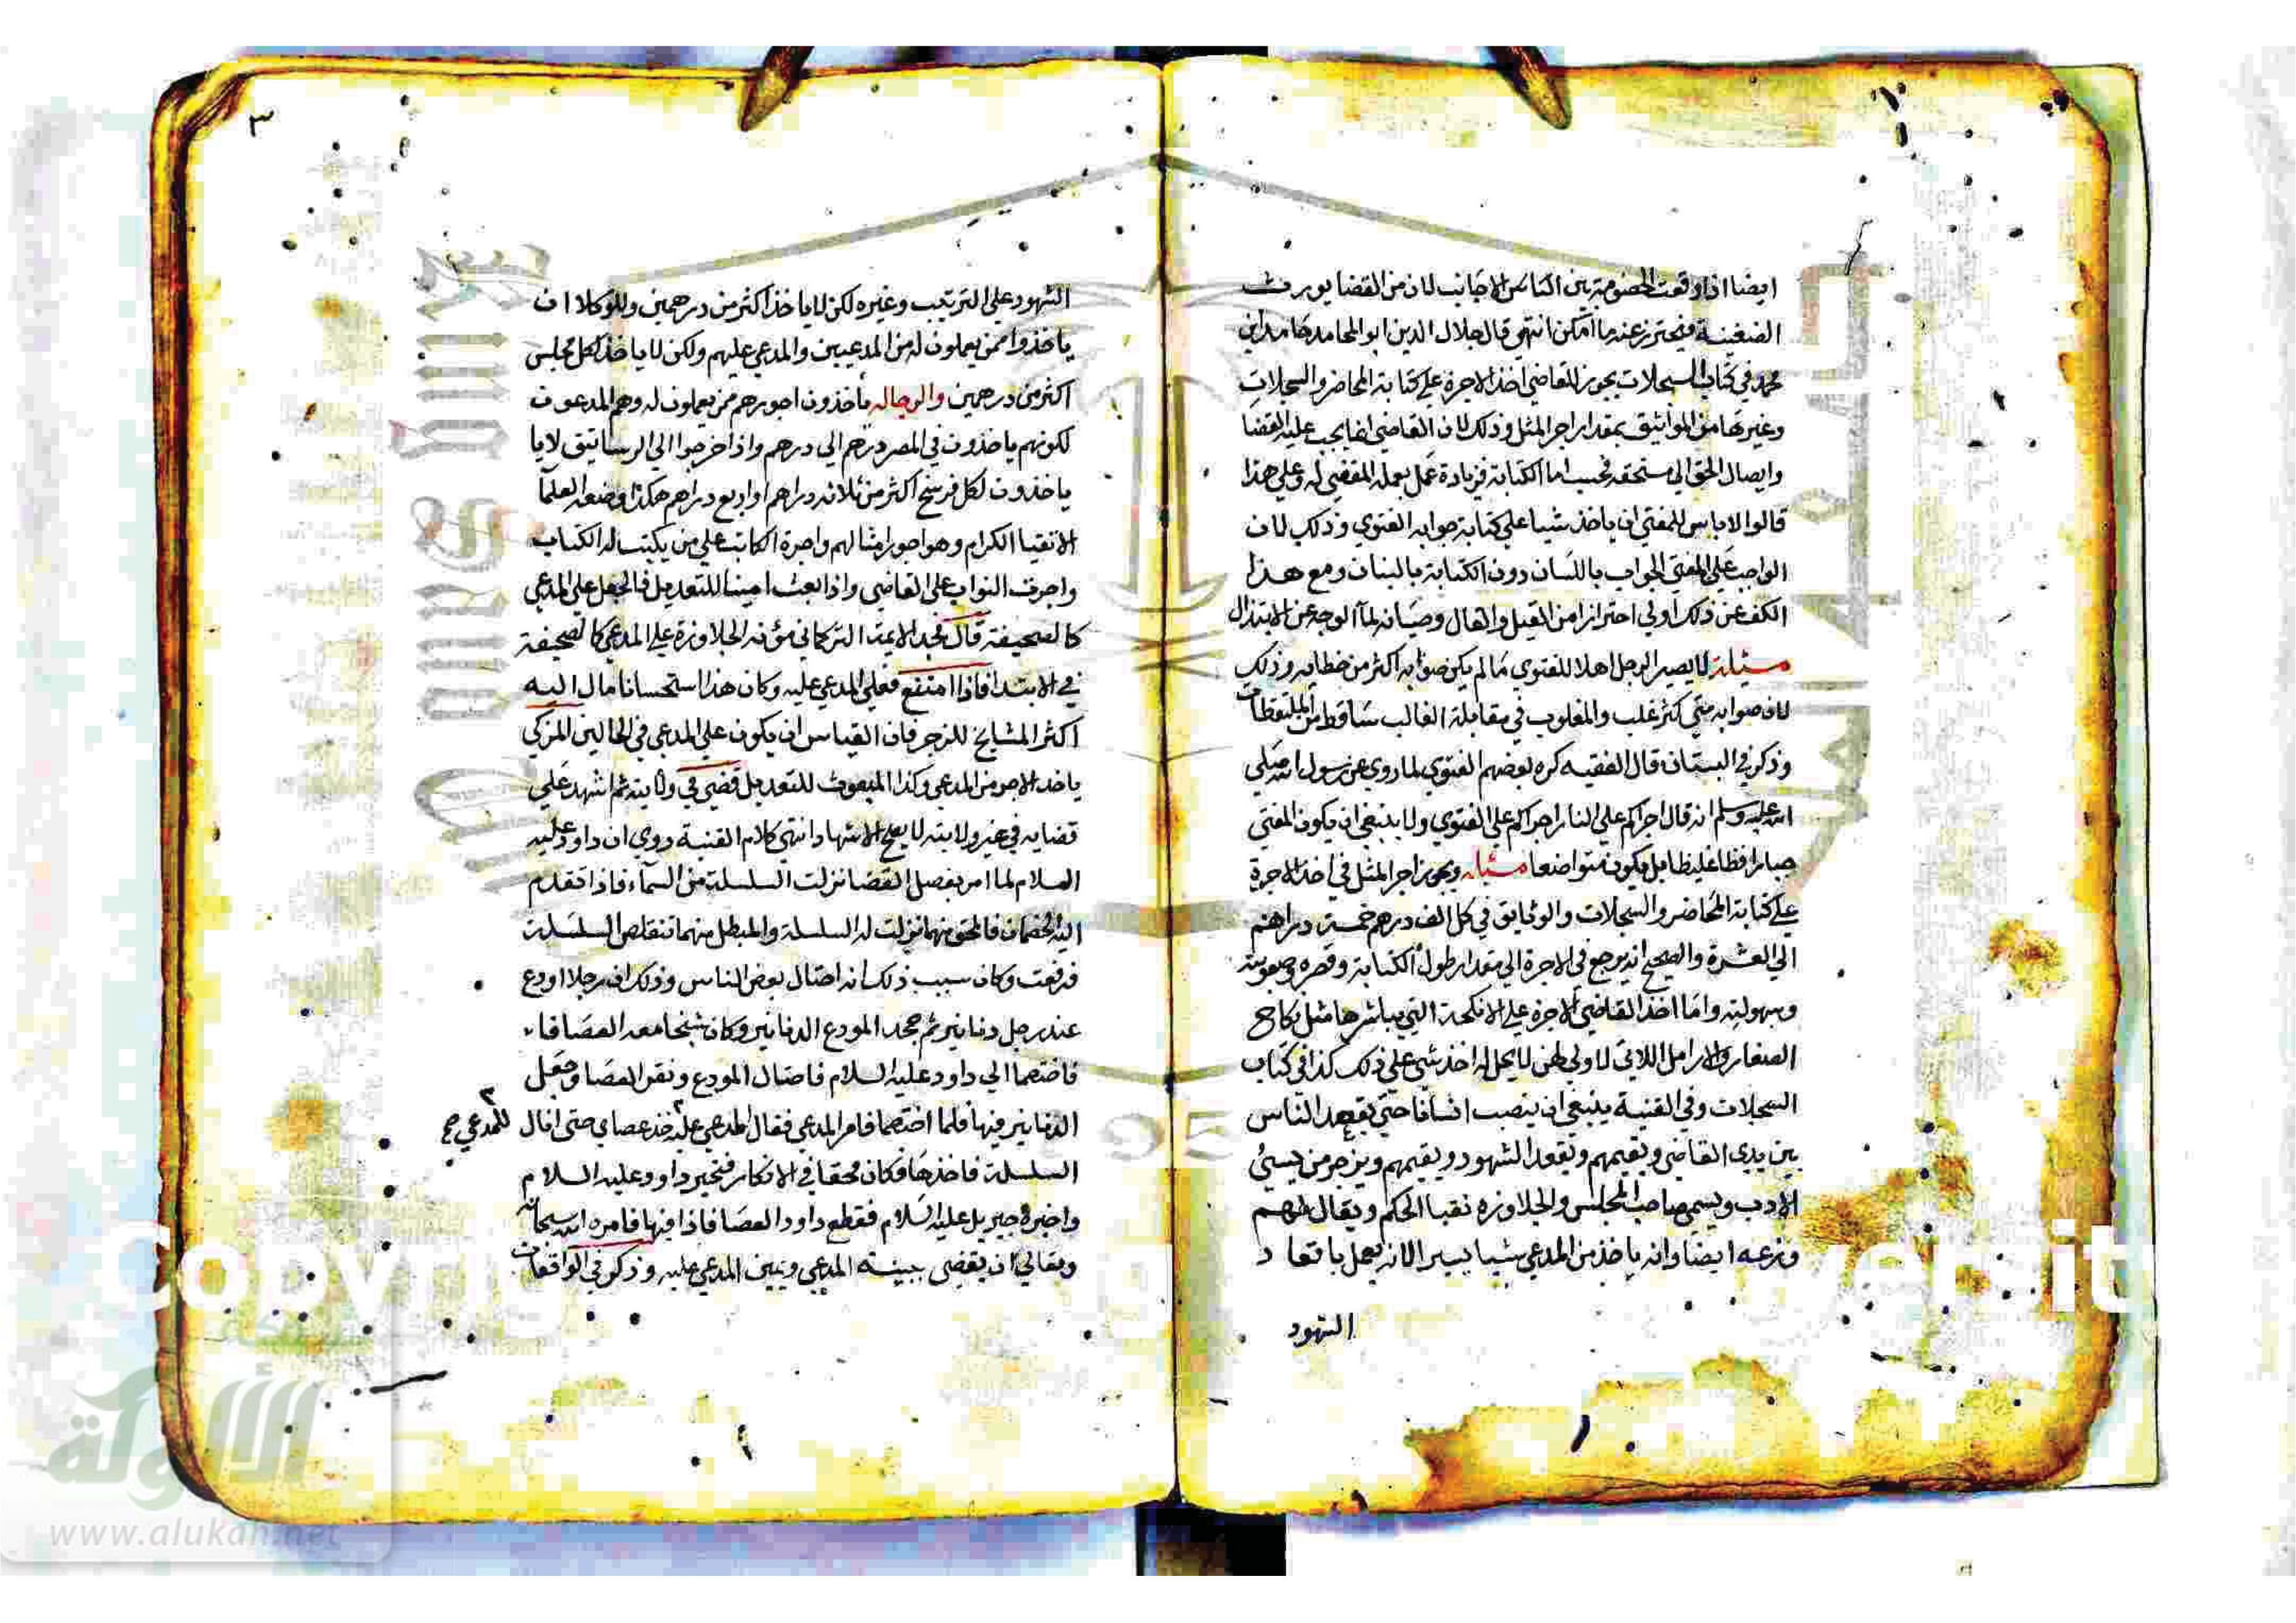 ايضا اذا وقعت الخصومة بين الناس الاجانب لان من القضا يورث
الضغينة فيحترز عنه ما امكن انتهي قال جلال الدين ابو المحامد حامد ابن
محمد في كتاب السجلات يجوز للقاضي اخذ الاجرة علي كتابة المحاضر والسجلات
وغيرها من المواثيق بمقدار اجر المثل وذلك لان القاضي انما يجب عليه القضا
وايصال الحق الي مستحقه فحسب اما الكتابة فزيادة عمل يعمله للمقضي له وعلي هذا
قالوا لا باس للمفتي ان ياخذ شيا علي كتابة جوابه الفتوي وذلك لان
الواجب علي المفتي الجواب باللسان دون الكتابة بالبنان ومع هذا
الكف عن ذلك اولي احترازا من القيل والقال وصيانة لماء الوجه عن الابتذال
مسئلة لا يصير الرجل اهلا للفتوي مالم يكن صوابه اكثر من خطايه وذلك
لان صوابه متي كثر غلب والمغلوب في مقابلة الغالب ساقط من الملتقطات
وذكر في البستان قال الفقيه كره بعضهم الفتوي لما روي عن رسول الله صلي
الله عليه وسلم انه قال اجراكم علي النار اجراكم علي الفتوي ولا ينبغي ان يكون المفتي
جبارا فظا غليظا بل يكون متواضعا مسئلة ويجوز اجر المثل في اخذ الاجرة
علي كتابة المحاضر والسجلات والوثايق في كل الف درهم خمسة دراهم
الي العشرة والصحيح انه يرجع في الاجرة الي مقدار طول الكتابة وقصره وصعوبته
وسهولته واما اخذ القاضي الاجرة علي الانكحة التي يباشرها مثل نكاح
الصغار والارامل اللاتي لا ولي لهن لا يحل له اخذ شي علي ذلك كذا في كتاب
السجلات وفي القنية ينبغي ان ينصب انسانا حتي يقعد الناس
بين يدي القاضي ويقيمهم ويقعد الشهود ويقيمهم ويزجر من يسئ
الادب ويسمي صاحب المجلس والجلاوزه نقبا الحكم ويقال لهم
وزعه ايضا وانه ياخذ من المدعي شيا يسيرا لانه يعمل باقعاد
الشهود
٣
الشهود علي الترتيب وغيره لكن لا ياخذ اكثر من درهمين وللوكلا ان
ياخذوا ممن يعملون له من المدعيين والمدعي عليهم ولكن لا ياخذ لكل مجلس
اكثر من درهمين والرجاله ياخذون اجورهم ممن يعملون له وهم المدعون
لكونهم ياخذون في المصر درهم الي درهم واذا خرجوا الي الرساتيق لا يا
ياخذون لكل فرسخ اكثر من ثلاثه دراهم او اربع دراهم هكذا وضعه العلما
الاتقيا الكرام وهو اجور امثالهم واجرة الكاتب علي من يكتب له الكتاب
واجرت النواب علي القاضي واذا بعث امينا للتعديل فالجعل علي المدعي
كالصحيفة قال مجد الايمة التركماني مؤنه الجلاوزة علي المدعي كالصحيفة
في الابتدا فاذا امتنع فعلي المدعي عليه وكان هذا استحسانا مال اليه
اكثر المشايخ للزجر فان القياس ان يكون علي المدعي في الحالين المزكي
ياخذ الاجر من المدعي وكذا المبعوث للتعديل قضي في ولايته ثم اشهد علي
قضايه في غير ولايته لا يصح الاشهاد انتهي كلام القنية روي ان داود عليه
السلام لما امر بفصل القضا نزلت السلسلة من السماء فاذا تقدم
اليه الخصمان فالمحق منهما نزلت له السلسلة والمبطل منهما تتقلص السلسلة
فرفعت وكان سبب ذلك انه احتال بعض الناس وذلك ان رجلا اودع
عند رجل دنانير ثم جحد المودع الدنانير وكان شيخا معه العصا فاء
فاختصما الي داود عليه السلام فاحتال المودع ونقر العصا وجعل
الدنانير فيها فلما اختصما قام المدعي فقال المدعي عليه خذ عصاي حتي انال
للمدعي صح
السلسلة فاخذها فكان محقا في الانكار فتحير داود عليه السلام
واخبره جبريل عليه السلام فقطع داود العصا فاذا فيها فامره الله سبحانه
وتعالي ان يقضي ببينة المدعي ويمين المدعي عليه وذكر في الواقعات
شبكة
الألوكة
www.alukah.net